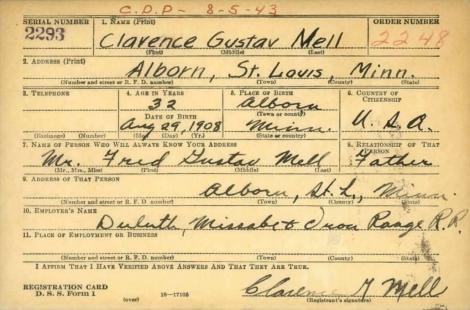 C.D.D - 8-5-43
SERIAL NUMBER 1. NAME (Print) ORDER NUMBER
2293 Clarence Gustav Mell 2248
(First) (Middle) (Last)
2. ADDRESS (Print)
Alborn, St. Louis, Minn.
(Number and street or R. F. D. number) (Town) (County) (State)
3. TELEPHONE 4. AGE IN YEARS 5. PLACE OF BIRTH 6. COUNTRY OF CITIZENSHIP
32 Alborn
DATE OF BIRTH (Town or county)
Aug 29, 1908 Minn. U.S.A.
(Exchange) (Number) (Mo.) (Day) (Yr.) (State or country)
7. NAME OF PERSON WHO WILL ALWAYS KNOW YOUR ADDRESS 8. RELATIONSHIP OF THAT PERSON
Mr. Fred Gustav Mell Father
(Mr., Mrs., Miss) (First) (Middle) (Last)
9. ADDRESS OF THAT PERSON
Alborn, St. L, Minn.
(Number and street or R. F. D. number) (Town) (County) (State)
10. EMPLOYER'S NAME
Duluth, Missabe & Iron Range R.R.
11. PLACE OF EMPLOYMENT OR BUSINESS
(Number and street or R. F. D. number) (Town) (County) (State)
I AFFIRM THAT I HAVE VERIFIED ABOVE ANSWERS AND THAT THEY ARE TRUE.
REGISTRATION CARD
D. S. S. Form 1 (over) 16-17105 Clarence G Mell
(Registrant's signature)